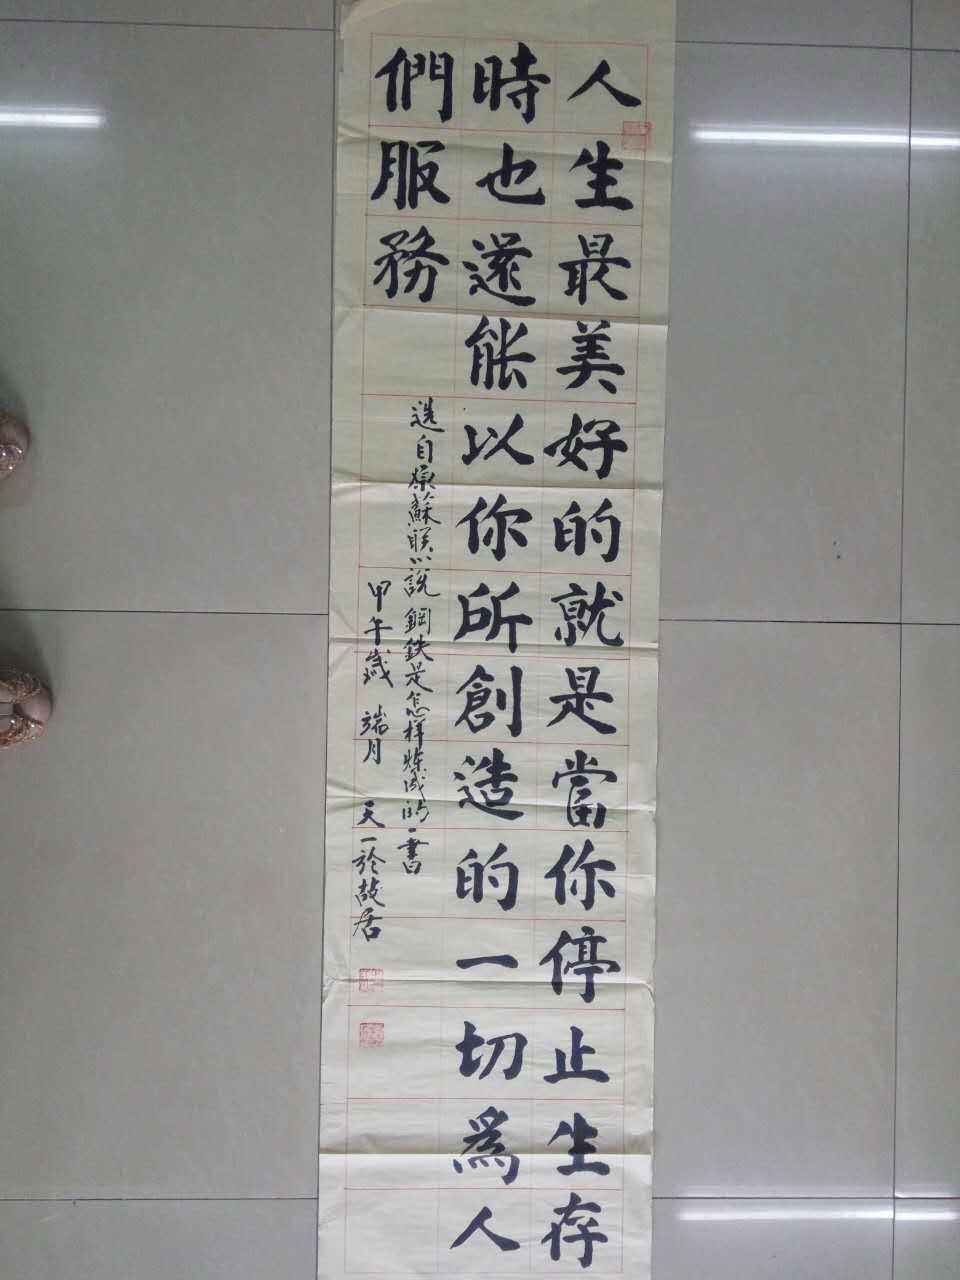 人生最美好的就是當你停止生存
時也還能以你所創造的一切爲人
們服務
选自原蘇联小説鋼鉄是怎样炼成的一書
甲午歲 端月 天一於故居